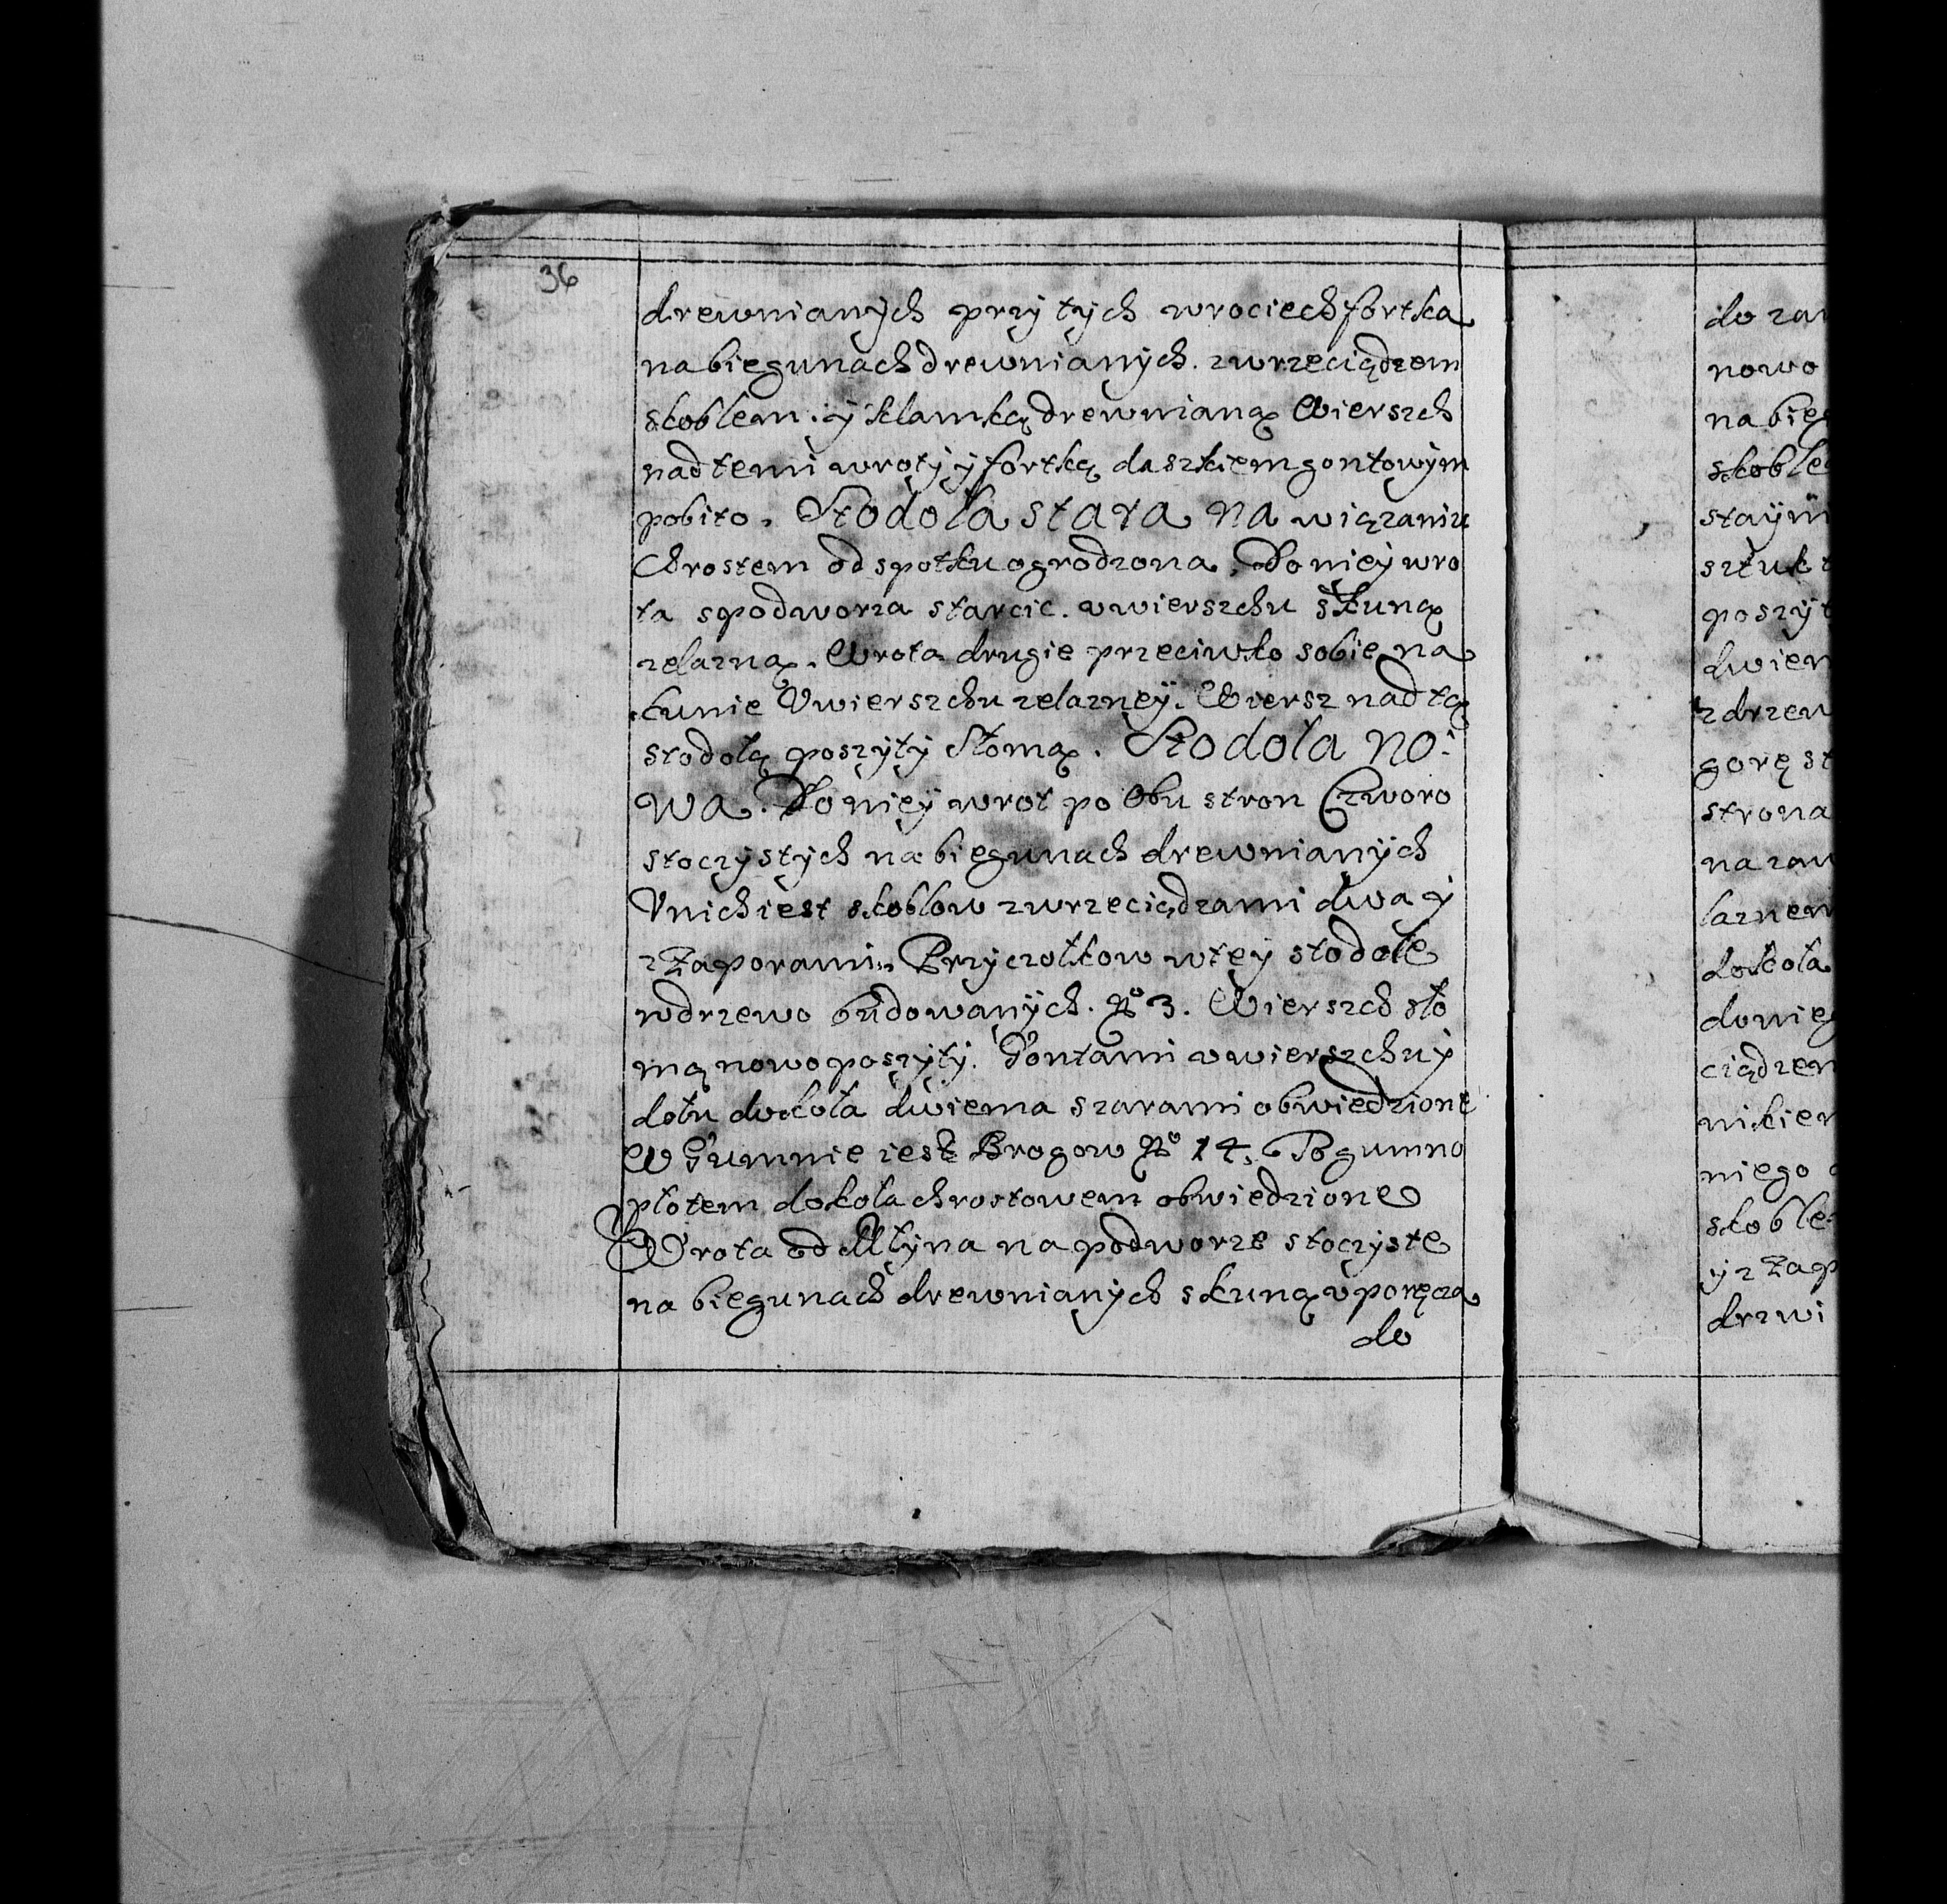 36
drewnianych przy tych wrociech fortka
na biegunach drewnianych. z wrzeciądzem
skoblem. y klamką drewnianą Wierszch
nad temi wroty y fortką daszkiem gontowym
pobito. Stodoła stara na wiązaniu
Chrostem od spotku ogrodzona, Do niey wro
ta s podworza starcic. v wierszchu s kuną
zelazną. Wrota drugie przeciwko sobie na
kunie V wierszchu zelazney. Wiersz nad tą
stodołą poszyty słomą. Stodoła no:
wa. Do niey wrot po obu stron Czworo
stoczystych na biegunach drewnianych
V nich iest skoblow z wrzeciądzami dwa y
z zaporami., Przyczołkow w tey stodole
w drzewo budowanych. No 3. Wierszch sło
mą nowo poszyty. Gontami v wierszchu y
dołu dokoła dwiema szarami obwiedzione
W Gumnie iest Brogow No 14. To gumno
płotem dokoła chrostowem obwiedzione
Wrota od Młyna na podworze stoczyste
na biegunach drewnianych s kuną v poręcza
do
do zam
nowo
na bieg
skoble
staym
sztuk
poszyt
dwiem
z drzew
gorę st
strona
na zaw
laznem
dokoła
do nieg
ciądzem
nikiem
niego
skoble
y z zap
drzwi